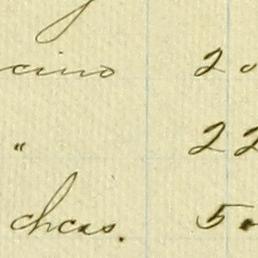 cino 20
" 22
chcas. 50